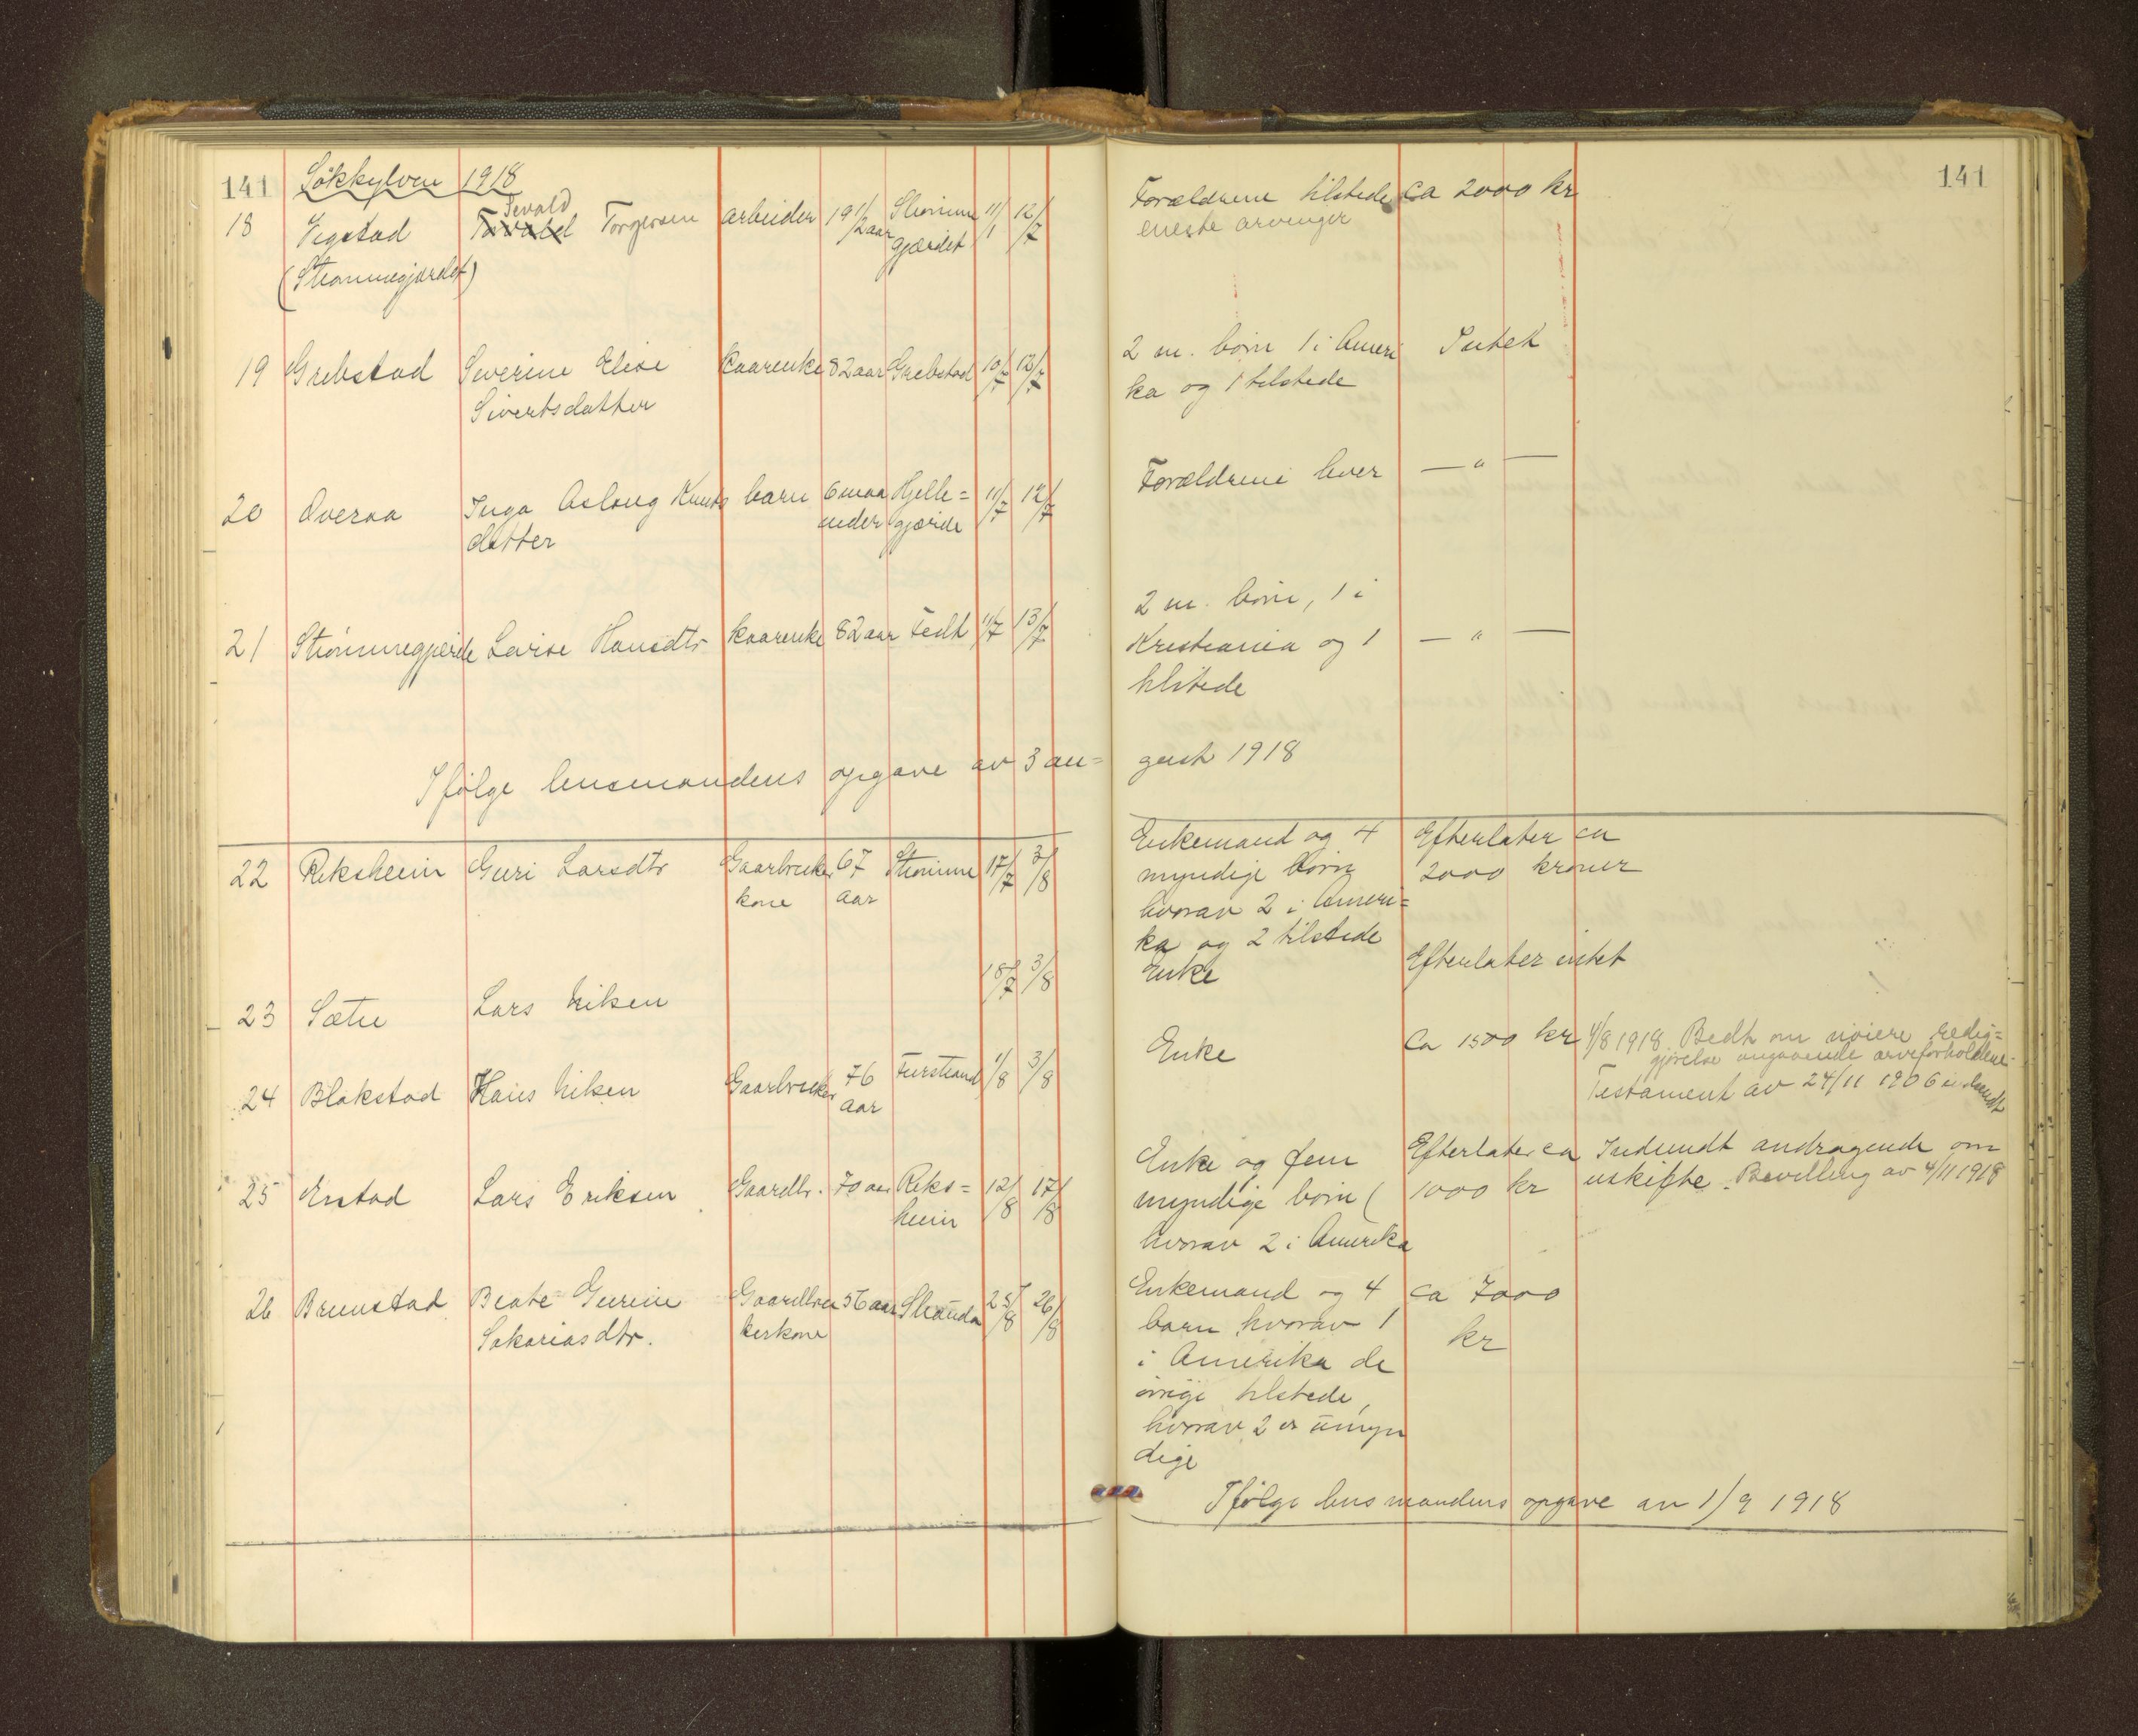 141 Søkkylven 1918
18 Vegstad Sevald Torgersen arbeider 19 1/2 aar Strømme 11/1 12/7 Forældrene tilstede ca 2000 kr
(Strømmegjærdet) gjærdet eneste arvinger
141
19 Grebstad Severine Elise kaarenke 82 aar Grebstad 10/7 12/7 2 m. børn 1 i Ameri Intet
Sivertsdatter ka og 1 tilstede
20 Overaa Inga Aslaug Knuts barn 6 maa Hjelle= 11/7 12/7 Forældrene lever — " —
datter neder gjærde
21 Strømmegjerde Lovise Hansdtr kaarenke 82 aar Tedt 11/7 13/7 2 m. børn, 1 i
Kristiania og 1 — " —
tilstede
Ifølge lensmandens opgave av 3 au= gust 1918
22 Riksheim Guri Larsdtr Gaarbruker 67 Strømme 17/7 3/8 Enkemand og 4 Efterlater ca
kone aar myndige børn 2000 kroner
hvorav 2 i Ameri=
ka og 2 tilstede
23 Sætre Lars Nilsen 18/7 3/8 Enke Efterlater intet
24 Blakstad Hans Nilsen Gaarbruker 76 Furstrand 1/8 3/8 Enke Ca 1500 kr 4/8 1918. Bedt om nøiere redig=
aar gjørelse angaaende arveforholdene.
Testament av 24/11 1906 indsendt
25 Erstad Lars Eriksen Gaardbr. 70 aar Riks= 12/8 17/8 Enke og fem Efterlater ca Indsendt andragende om
heim myndige børn ( 1000 kr uskifte. Bevilling av 4/11 1918
hvorav 2 i Amerika
26 Brunstad Beate Gurine Gaardbru 56 aar Stranda 25/8 26/8 Enkemand og 4 ca 7000
Sakariasdtr. kerkone barn hvorav 1 kr
i Amerika de
øvrige tilstede,
hvorav 2 er umyn
dige
Ifølge lensmandens opgave av 1/9 1918